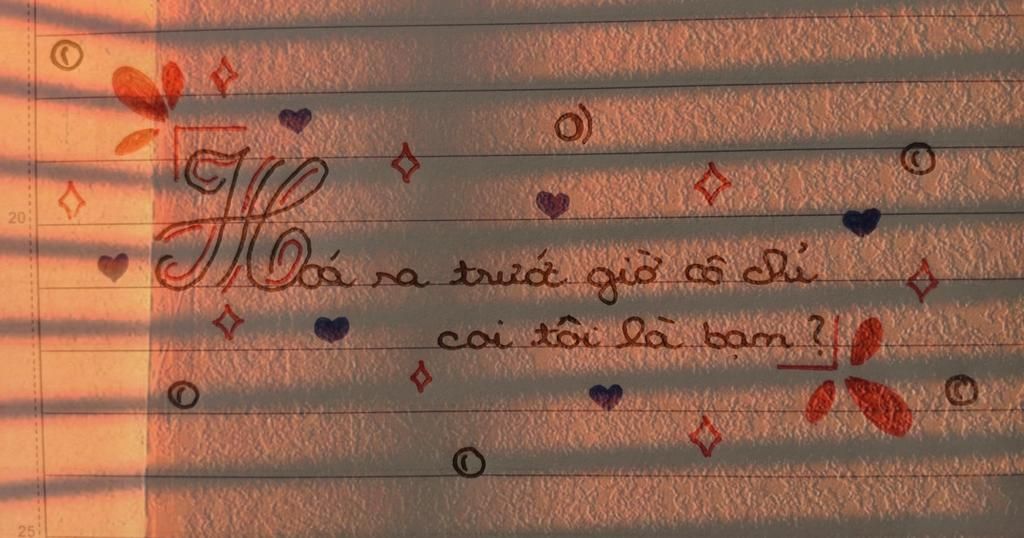 Hoá ra trước giờ cô chỉ
coi tôi là bạn ?
20
25